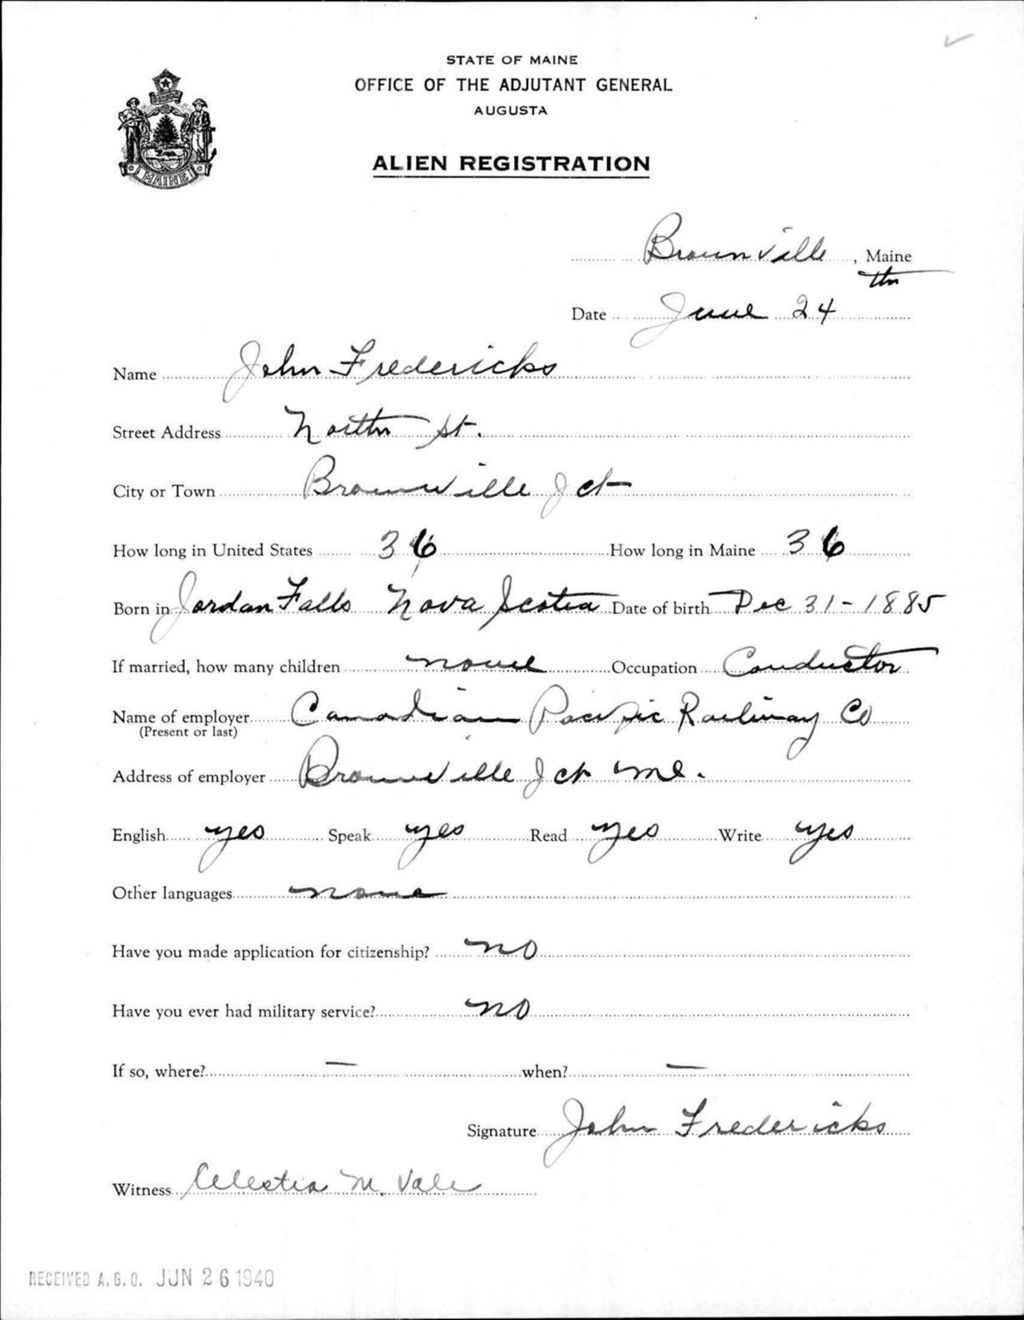 STATE OF MAINE
OFFICE OF THE ADJUTANT GENERAL
AUGUSTA
ALIEN REGISTRATION
MAINE
Brownville, Maine
Date June 24th
Name John Fredericks
Street Address North St.
City or Town Brownville Jct
How long in United States 36 How long in Maine 36
Born in Jordan Falls Nova Scotia Date of birth Dec 31-1885
If married, how many children none Occupation Conductor
Name of employer Canadian Pacific Railway Co
(Present or last)
Address of employer Brownville Jct Me.
English yes Speak yes Read yes Write yes
Other languages none
Have you made application for citizenship? no
Have you ever had military service? no
If so, where? — when? —
Signature John Fredericks
Witness Celestia M. Vale
RECEIVED A. G. O. JUN 26 1940